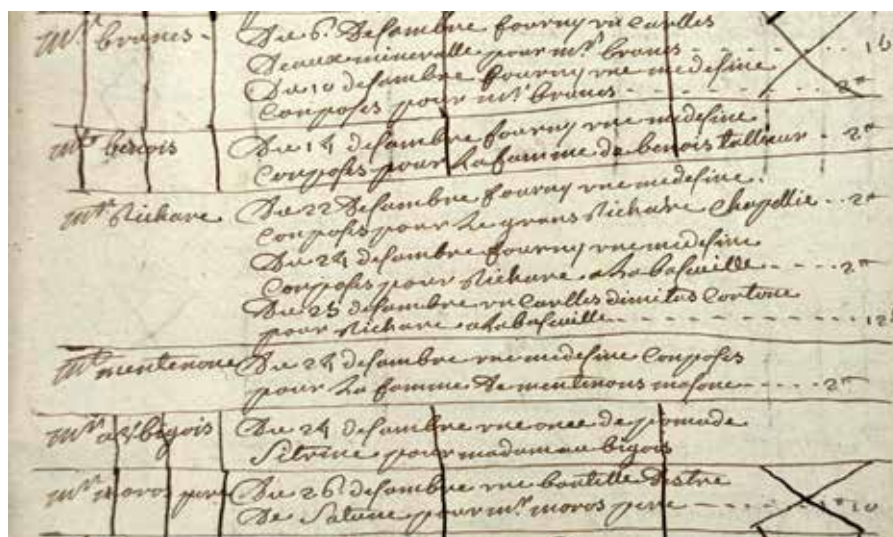 mr brancs - Du 6 desambre fourny vne carlles
deaux mineralle pour mr brancs - - - - - 16
Du 10 desambre fourny vne medesine
conposes pour mr brancs - - - - - 2
mr benois Du 14 desambre fourny vne medesine
conposes pour la famme de benois tallieur - - 2
mr Richare Du 22 desambre fourny vne medesine
conposes pour le grans Richare chapellie - - 2
Du 24 desambre fourny vne medesine
conposes pour Richare a la basuille - - - - 2
Du 25 desambre vn carlles
pour Richare a la basuille - - - - - 12
mr mentenone Du 24 desambre vne medesine conposes
pour la famme de mentenons masone - - - - 2
Du 24 desambre vne once de pomade
sitrine pour madam au bigois
mr moros pere Du 26 desambre vne boutelle
de Satune pour mr moros pere - - - - 10